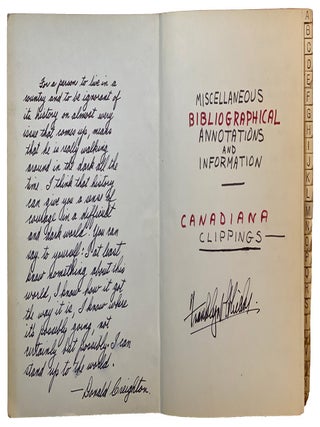 For a person to live in a
country and to be ignorant of
its history on almost every
issue that comes up, means
that he is really walking
around in the dark all the
time. I think that history
can give you a sense of
courage in a difficult
and dark world. You can
say to yourself: I at least
know something about this
world, I know how it got
the way it is, I know where
it's possibly going, not
certainly but possibly. I can
stand up to the world.
— Donald Creighton.
MISCELLANEOUS
BIBLIOGRAPHICAL
ANNOTATIONS
AND
INFORMATION
CANADIANA
CLIPPINGS
A
B
C
D
E
F
G
H
I
J
K
L